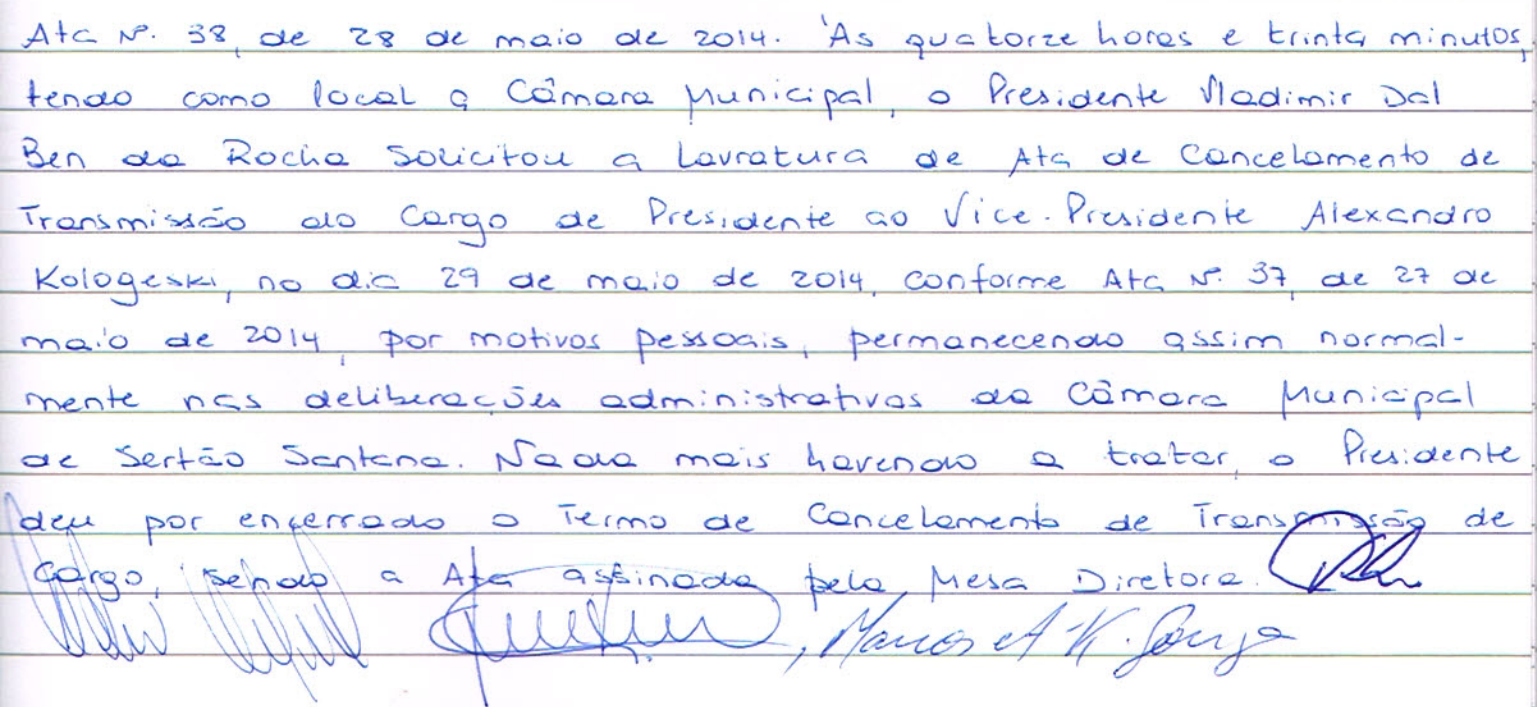 Ata Nº. 38, de 28 de maio de 2014. Às quatorze horas e trinta minutos,
tendo como local a Câmara Municipal, o Presidente Vladimir Dal
Ben da Rocha solicitou a Lavratura de Ata de Cancelamento de
Transmissão do Cargo de Presidente ao Vice-Presidente Alexandro
Kologeski, no dia 29 de maio de 2014, conforme Ata Nº. 37, de 27 de
maio de 2014, por motivos pessoais, permanecendo assim normal-
mente nas deliberações administrativas da Câmara Municipal
de Sertão Santana. Nada mais havendo a tratar, o Presidente
deu por encerrado o Termo de Cancelamento de Transmissão de
Cargo, sendo a Ata assinada pela Mesa Diretora.
, Marcos A. K. Souza